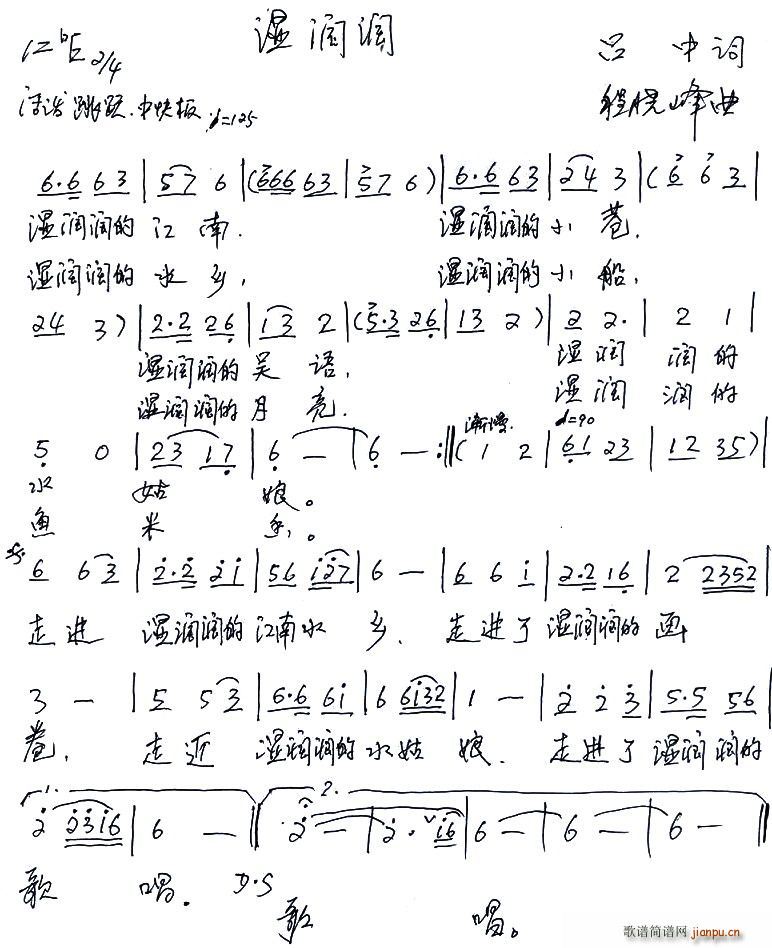 湿润润
1=bE 2/4
吕 中词
活泼 跳跃 中快板 ♩=125
程晓峰曲
6·6 63 | 57 6 | (666 63 | 57 6) | 6·6 63 | 24 3 | (6 6 3 |
湿润润的 江 南. 湿润润的小 巷.
湿润润的 水 乡, 湿润润的小 船,
24 3) | 2·2 26 | 13 2 | (5·3 26 | 13 2) | 2 2· | 2 1 |
湿润润的 吴 语, 湿 润 润 的
湿润润的 月 亮. 湿 润 润 的
渐慢 ♩=90
5 0 | 23 17 | 6 — | 6 — :‖ ( 1 2 | 61 23 | 12 35) |
水 姑 娘。
鱼 米 乡。
6 63 | 2·2 21 | 56 127 | 6 — | 6 6 1 | 2·2 16 | 2 2352 |
走进 湿润润的江南水 乡. 走进了湿润润的 画
3 — | 5 53 | 6·6 61 | 6 6132 | 1 — | 2 2 3 | 5·5 56 |
卷, 走近 湿润润的水姑 娘. 走进了 湿润润的
1. 2.
2 2316 | 6 — ‖ 2 — | 2· ∨16 | 6 — | 6 — | 6 — ‖
歌 唱. D.S
歌 唱。
歌谱简谱网
jianpu.cn